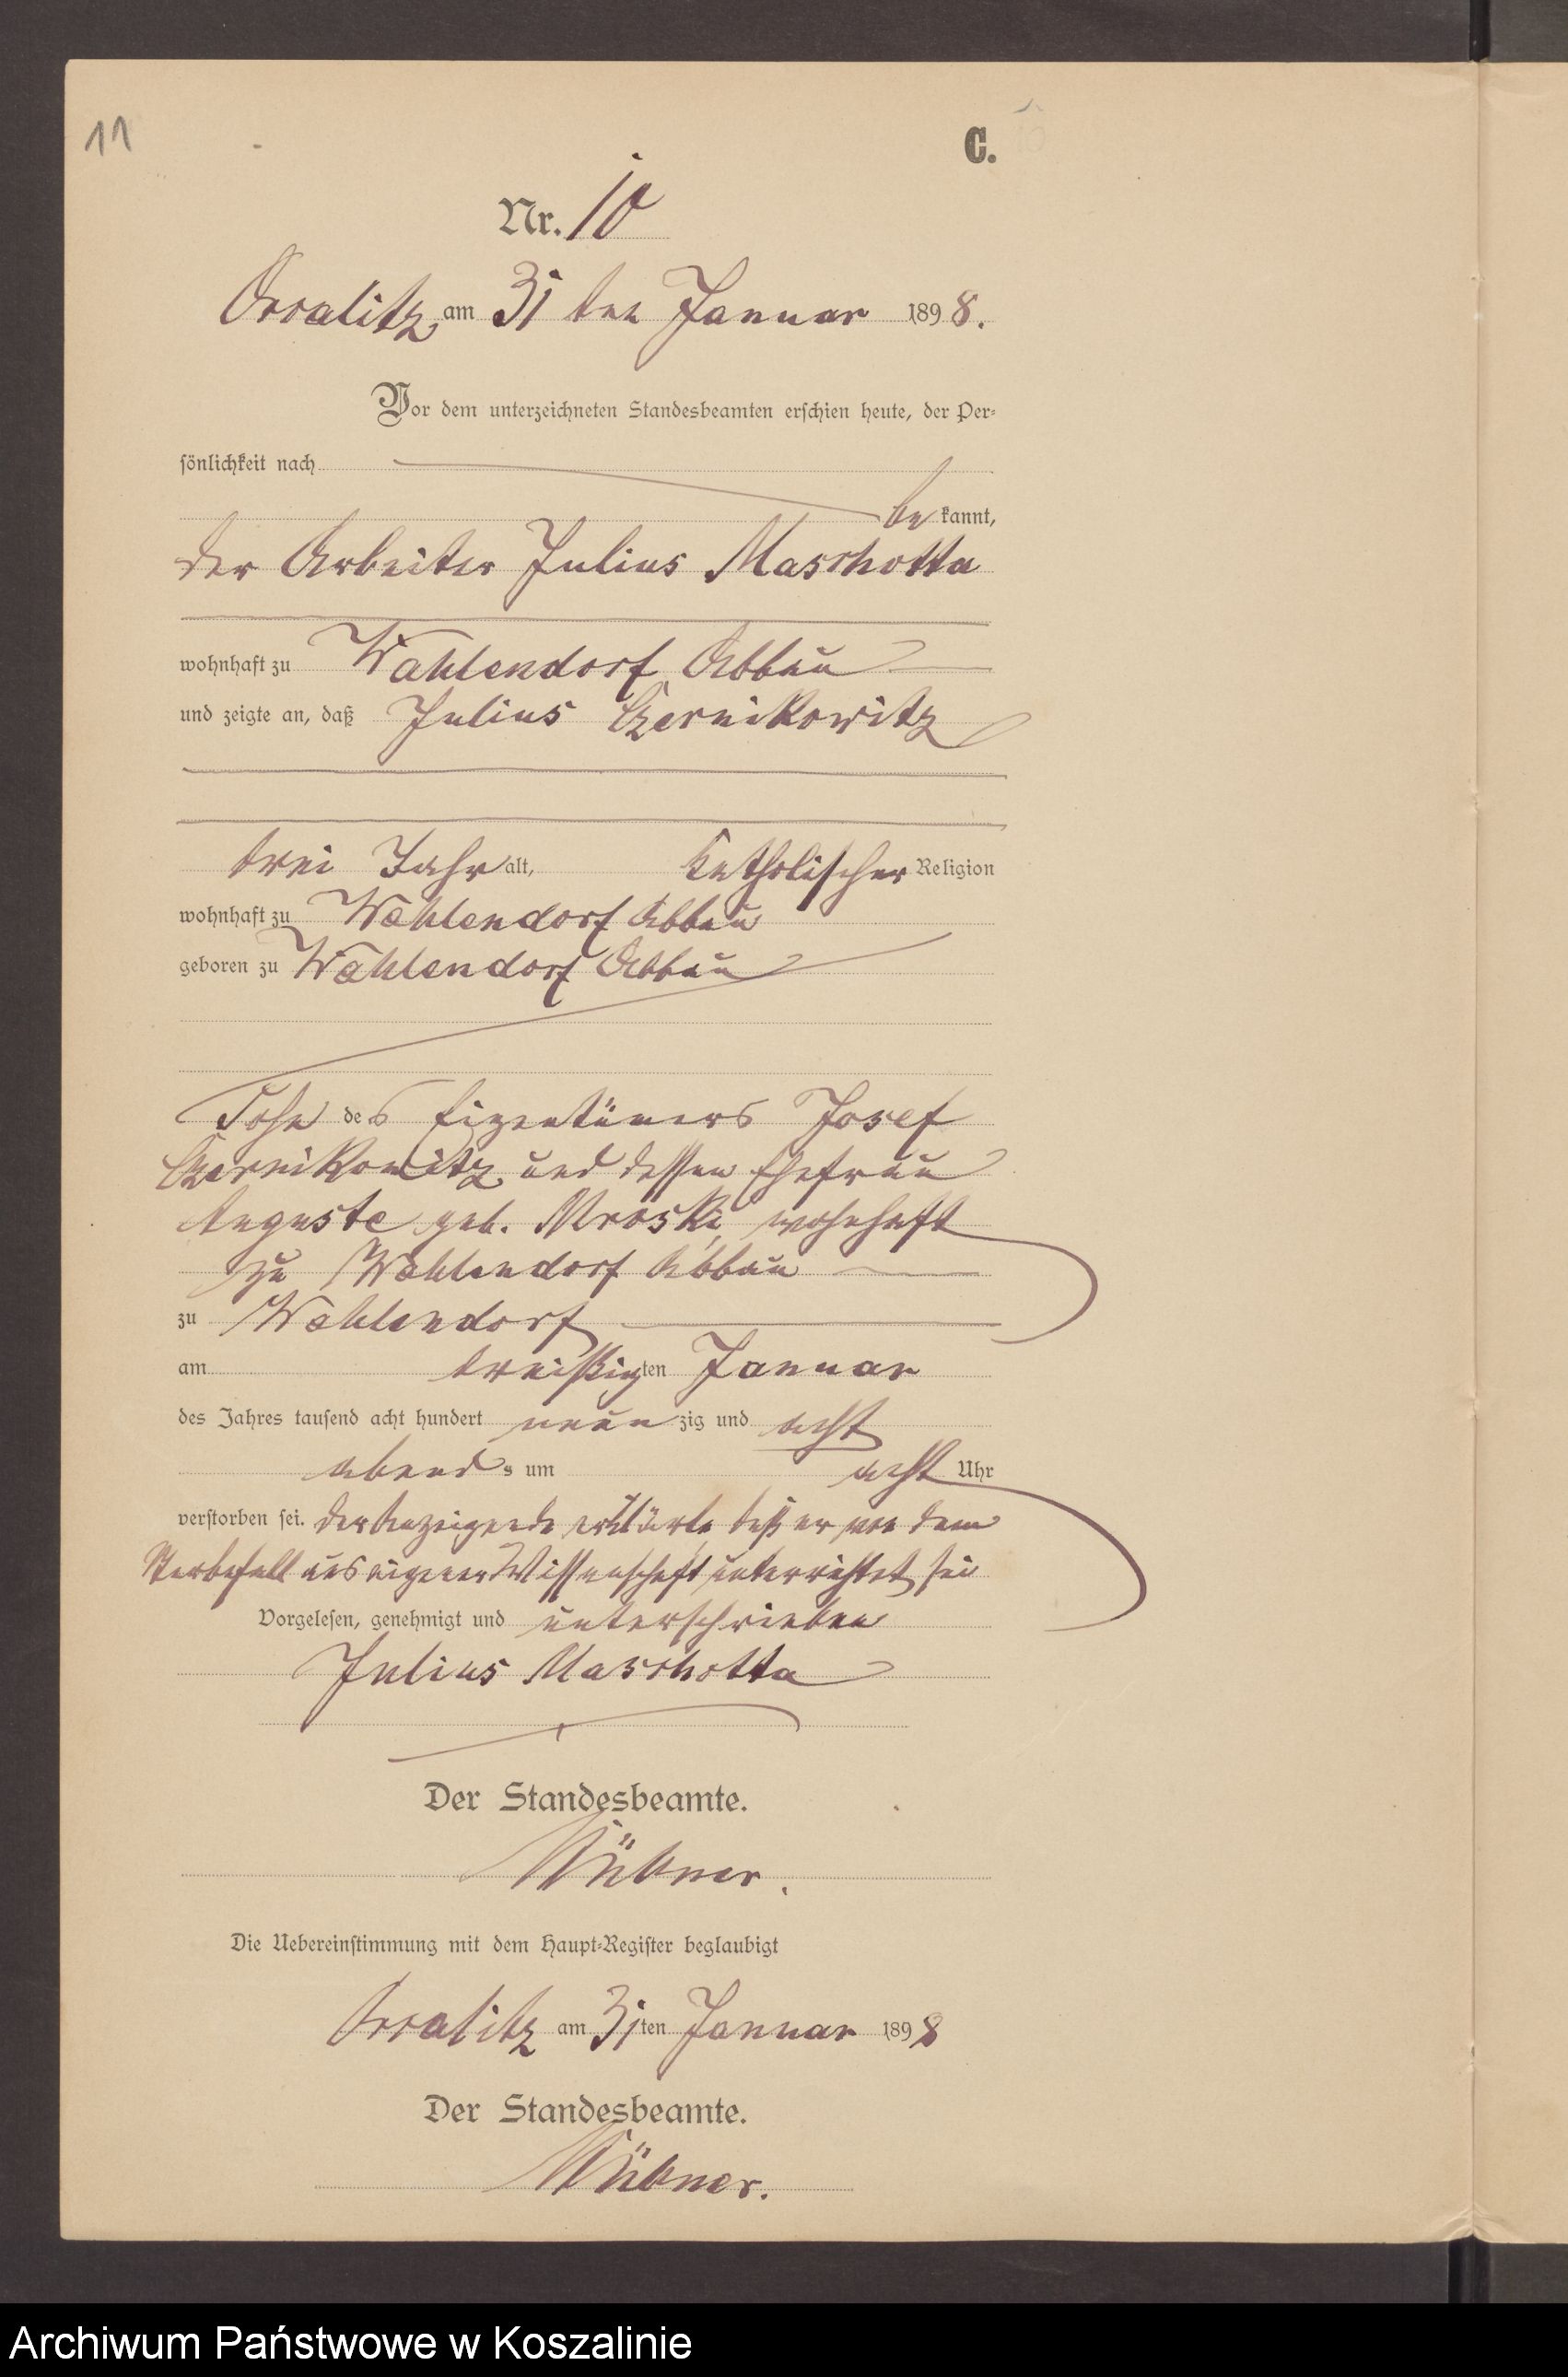 11
C.
Nr. 10
Ossalitz am 31ten Januar 1898.
Vor dem unterzeichneten Standesbeamten erschien heute, der Per-
sönlichkeit nach
be kannt,
der Arbeiter Julius Maschotta
wohnhaft zu Wahlendorf Abbau
und zeigte an, daß Julius Czernikowitz
drei Jahr alt, katholischer Religion
wohnhaft zu Wahlendorf Abbau
geboren zu Wahlendorf Abbau
Sohn des Eigentümers Josef
Czernikowitz und dessen Ehefrau
Auguste geb. Mroski, wohnhaft
zu Wahlendorf Abbau
zu Wahlendorf
am dreißigten Januar
des Jahres tausend acht hundert neunzig und acht
abends um acht Uhr
verstorben sei. der Anzeigende erklärte, daß er von dem
Sterbefall aus eigener Wissenschaft unterrichtet sei
Vorgelesen, genehmigt und unterschrieben
Julius Maschotta
Der Standesbeamte.
Die Uebereinstimmung mit dem Haupt-Register beglaubigt
Ossalitz am 31ten Januar 1898
Der Standesbeamte.
Archiwum Państwowe w Koszalinie